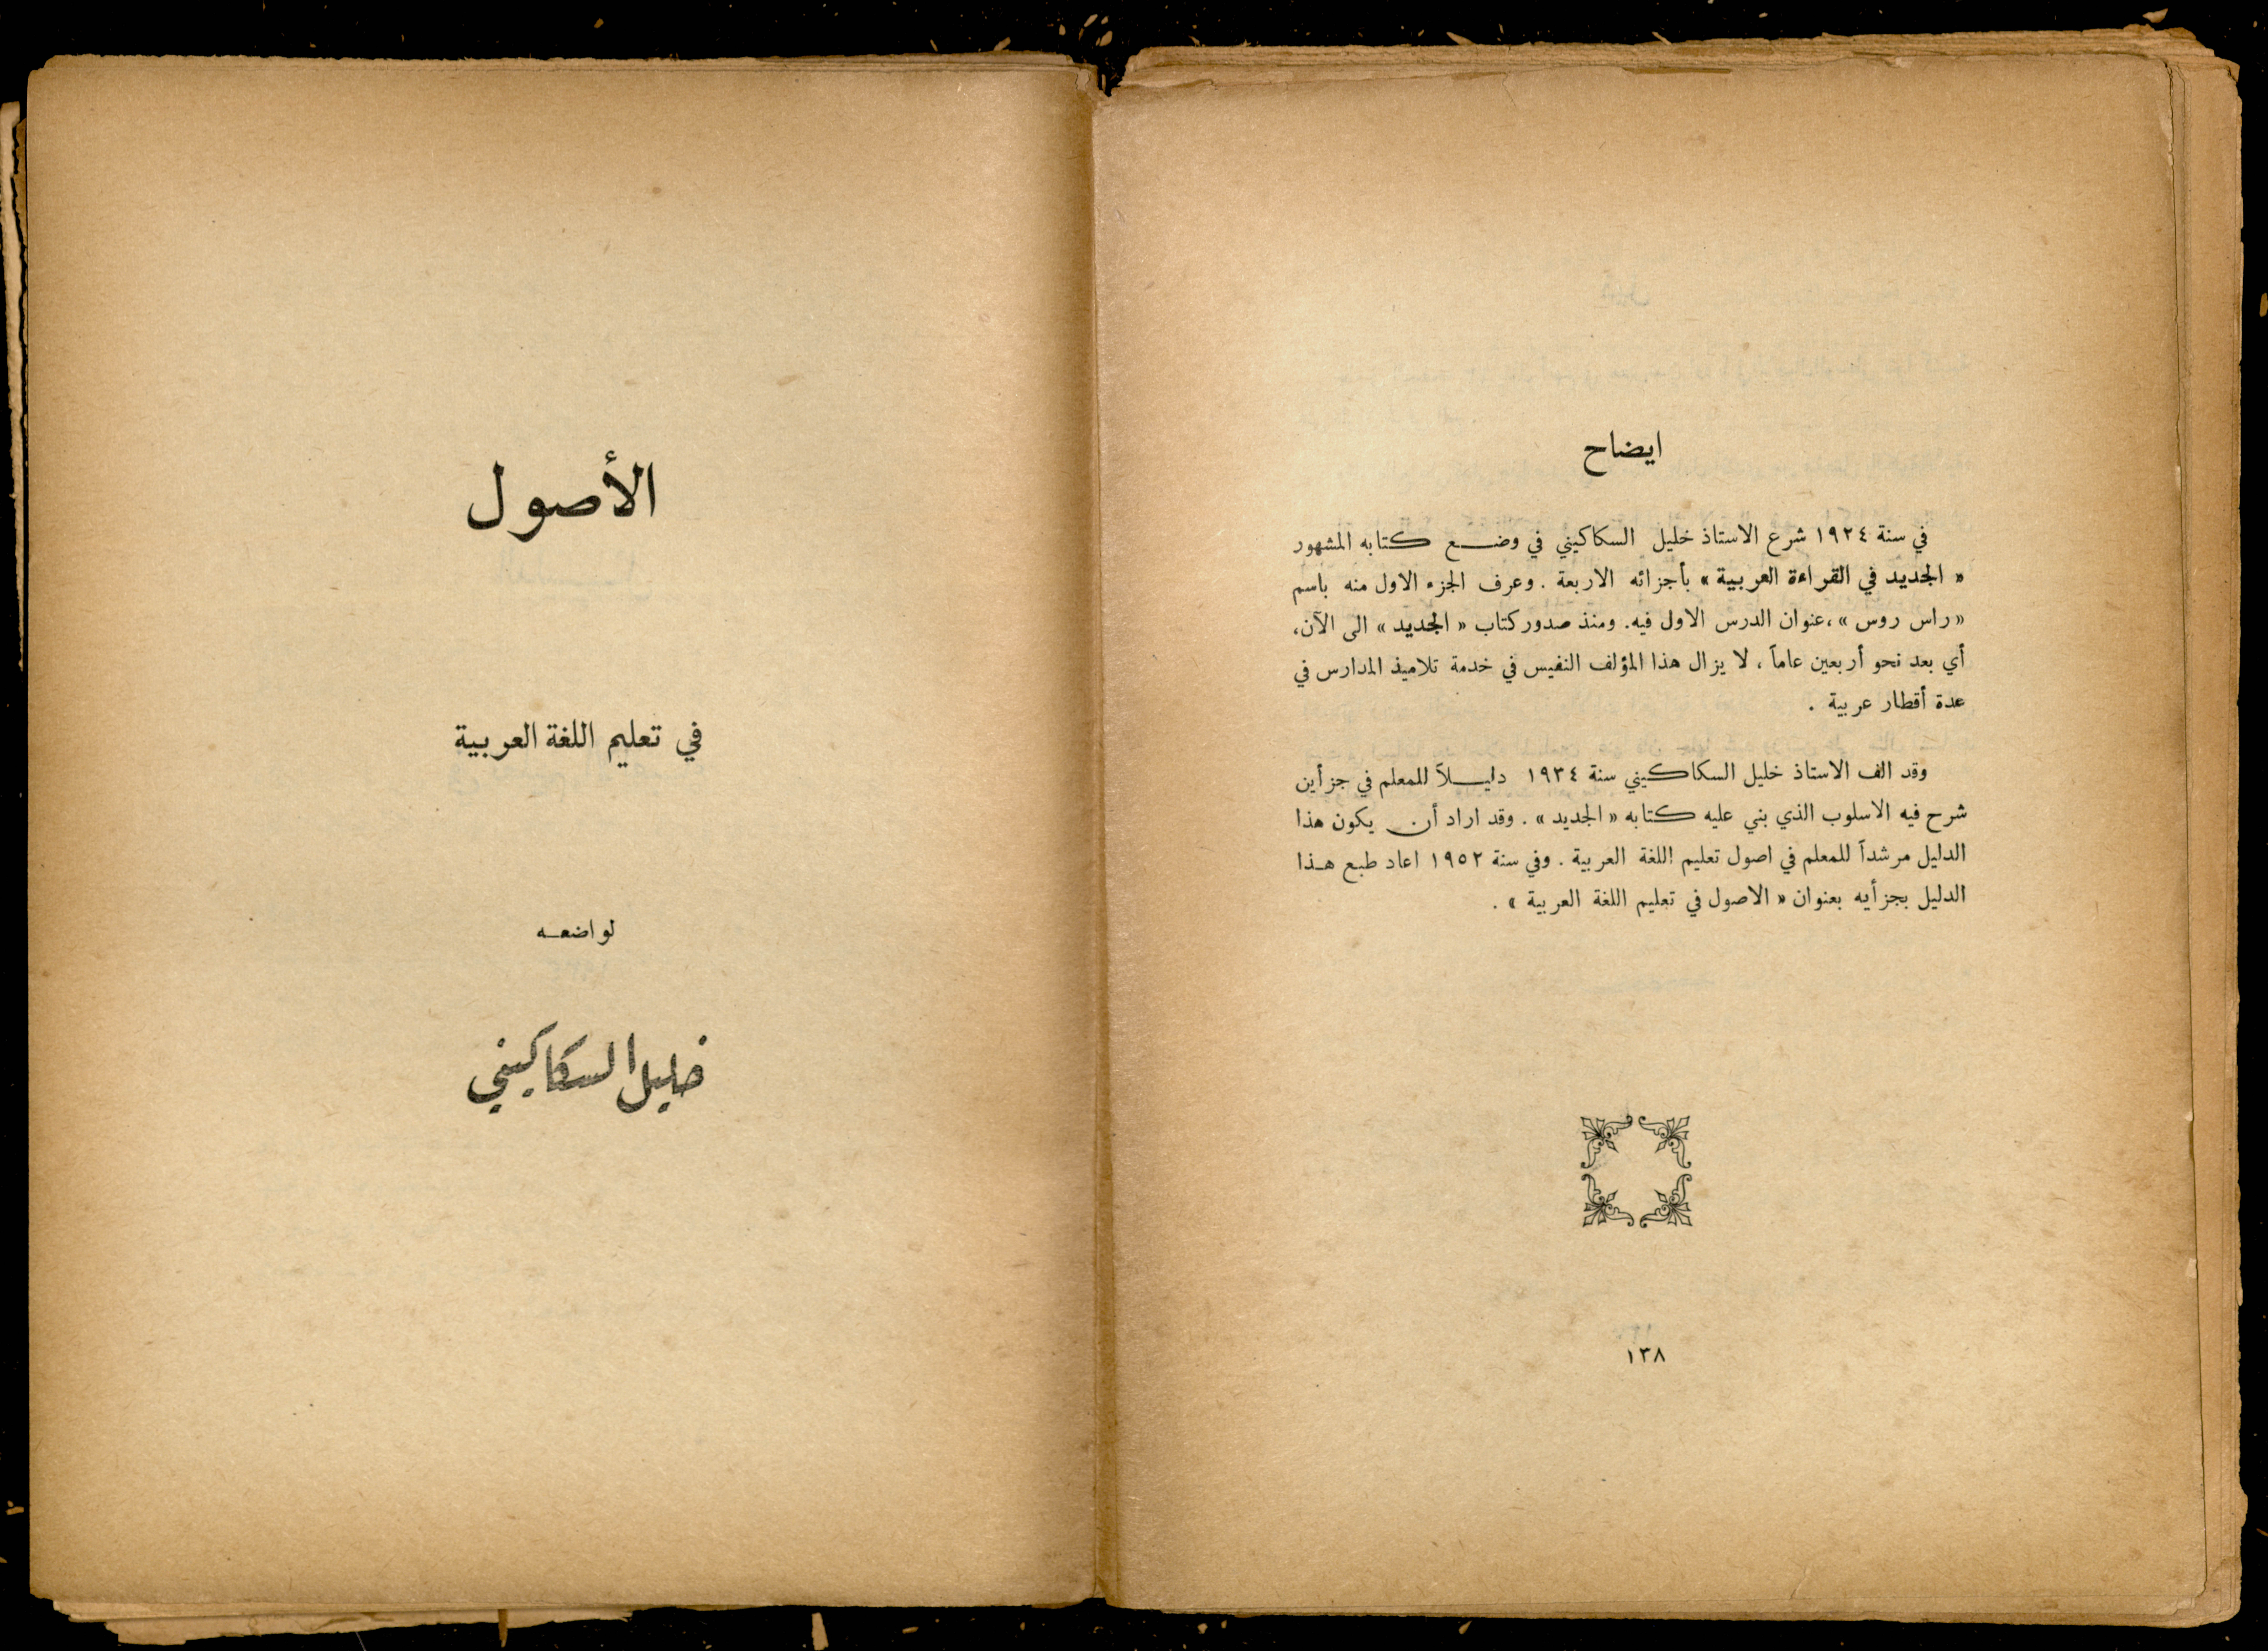 ايضاح
في سنة ١٩٢٤ شرع الاستاذ خليل السكاكيني في وضع كتابه المشهور
« الجديد في القراءة العربية » بأجزائه الاربعة . وعرف الجزء الاول منه باسم
« راس روس » ، عنوان الدرس الاول فيه . ومنذ صدور كتاب « الجديد » الى الآن ،
أي بعد نحو أربعين عاماً ، لا يزال هذا المؤلف النفيس في خدمة تلاميذ المدارس في
عدة أقطار عربية .
وقد الف الاستاذ خليل السكاكيني سنة ١٩٣٤ دليلاً للمعلم في جزأين
شرح فيه الاسلوب الذي بني عليه كتابه « الجديد » . وقد اراد أن يكون هذا
الدليل مرشداً للمعلم في اصول تعليم اللغة العربية . وفي سنة ١٩٥٢ اعاد طبع هذا
الدليل بجزأيه بعنوان « الاصول في تعليم اللغة العربية » .
١٣٨
الأصول
في تعليم اللغة العربية
لواضعه
خليل السكاكيني